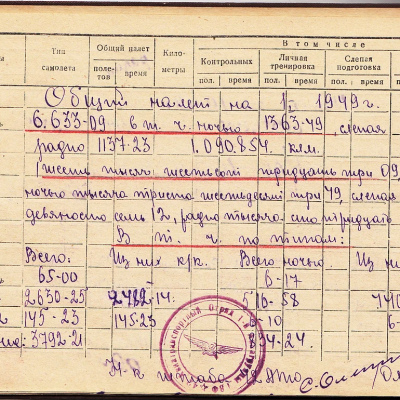 В том числе
Тип самолета
Общий налет
Кило-метры
Контрольных
Личная тренировка
Слепая подготовка
поле-тов
время
пол.
время
пол.
время
пол.
время
Общий налет на 1. 1949г.
6.633-09. в т. ч. ночью 1363-49, слепая
радио 1137-23 1.090.854 клм.
(шесть тысяч шестьсот тридцать три 09,
ночью тысяча триста шестьдесят три 49, слепая
девяносто семь 12, радио тысяча сто тридцать
В т. ч. по типам:
Всего: Из них к/к. Всего ночью. Из ни
65-00 6-17
2630-25 2782-14. 516-58 740
145-23 145-23 -10 6-
3792-21 34-24.
Н-к штаба 2 АТО